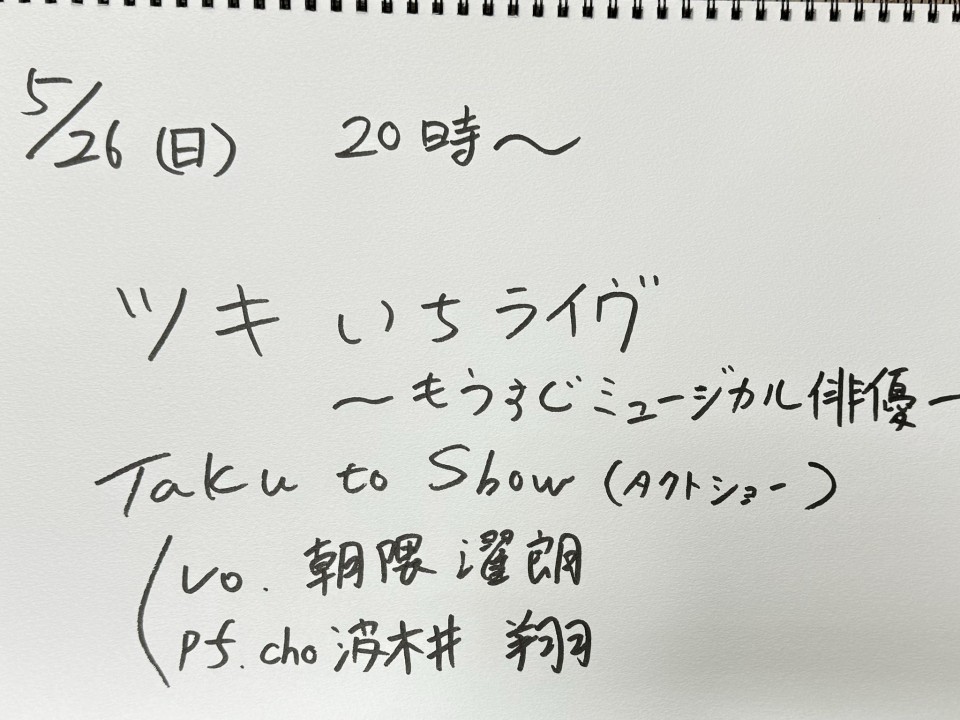 5/26(日) 20時〜
ツキいちライヴ
〜もうすぐミュージカル俳優ー
Taku to Show (タクトショー)
vo. 朝隈濯朗
pf. cho 波木井 翔